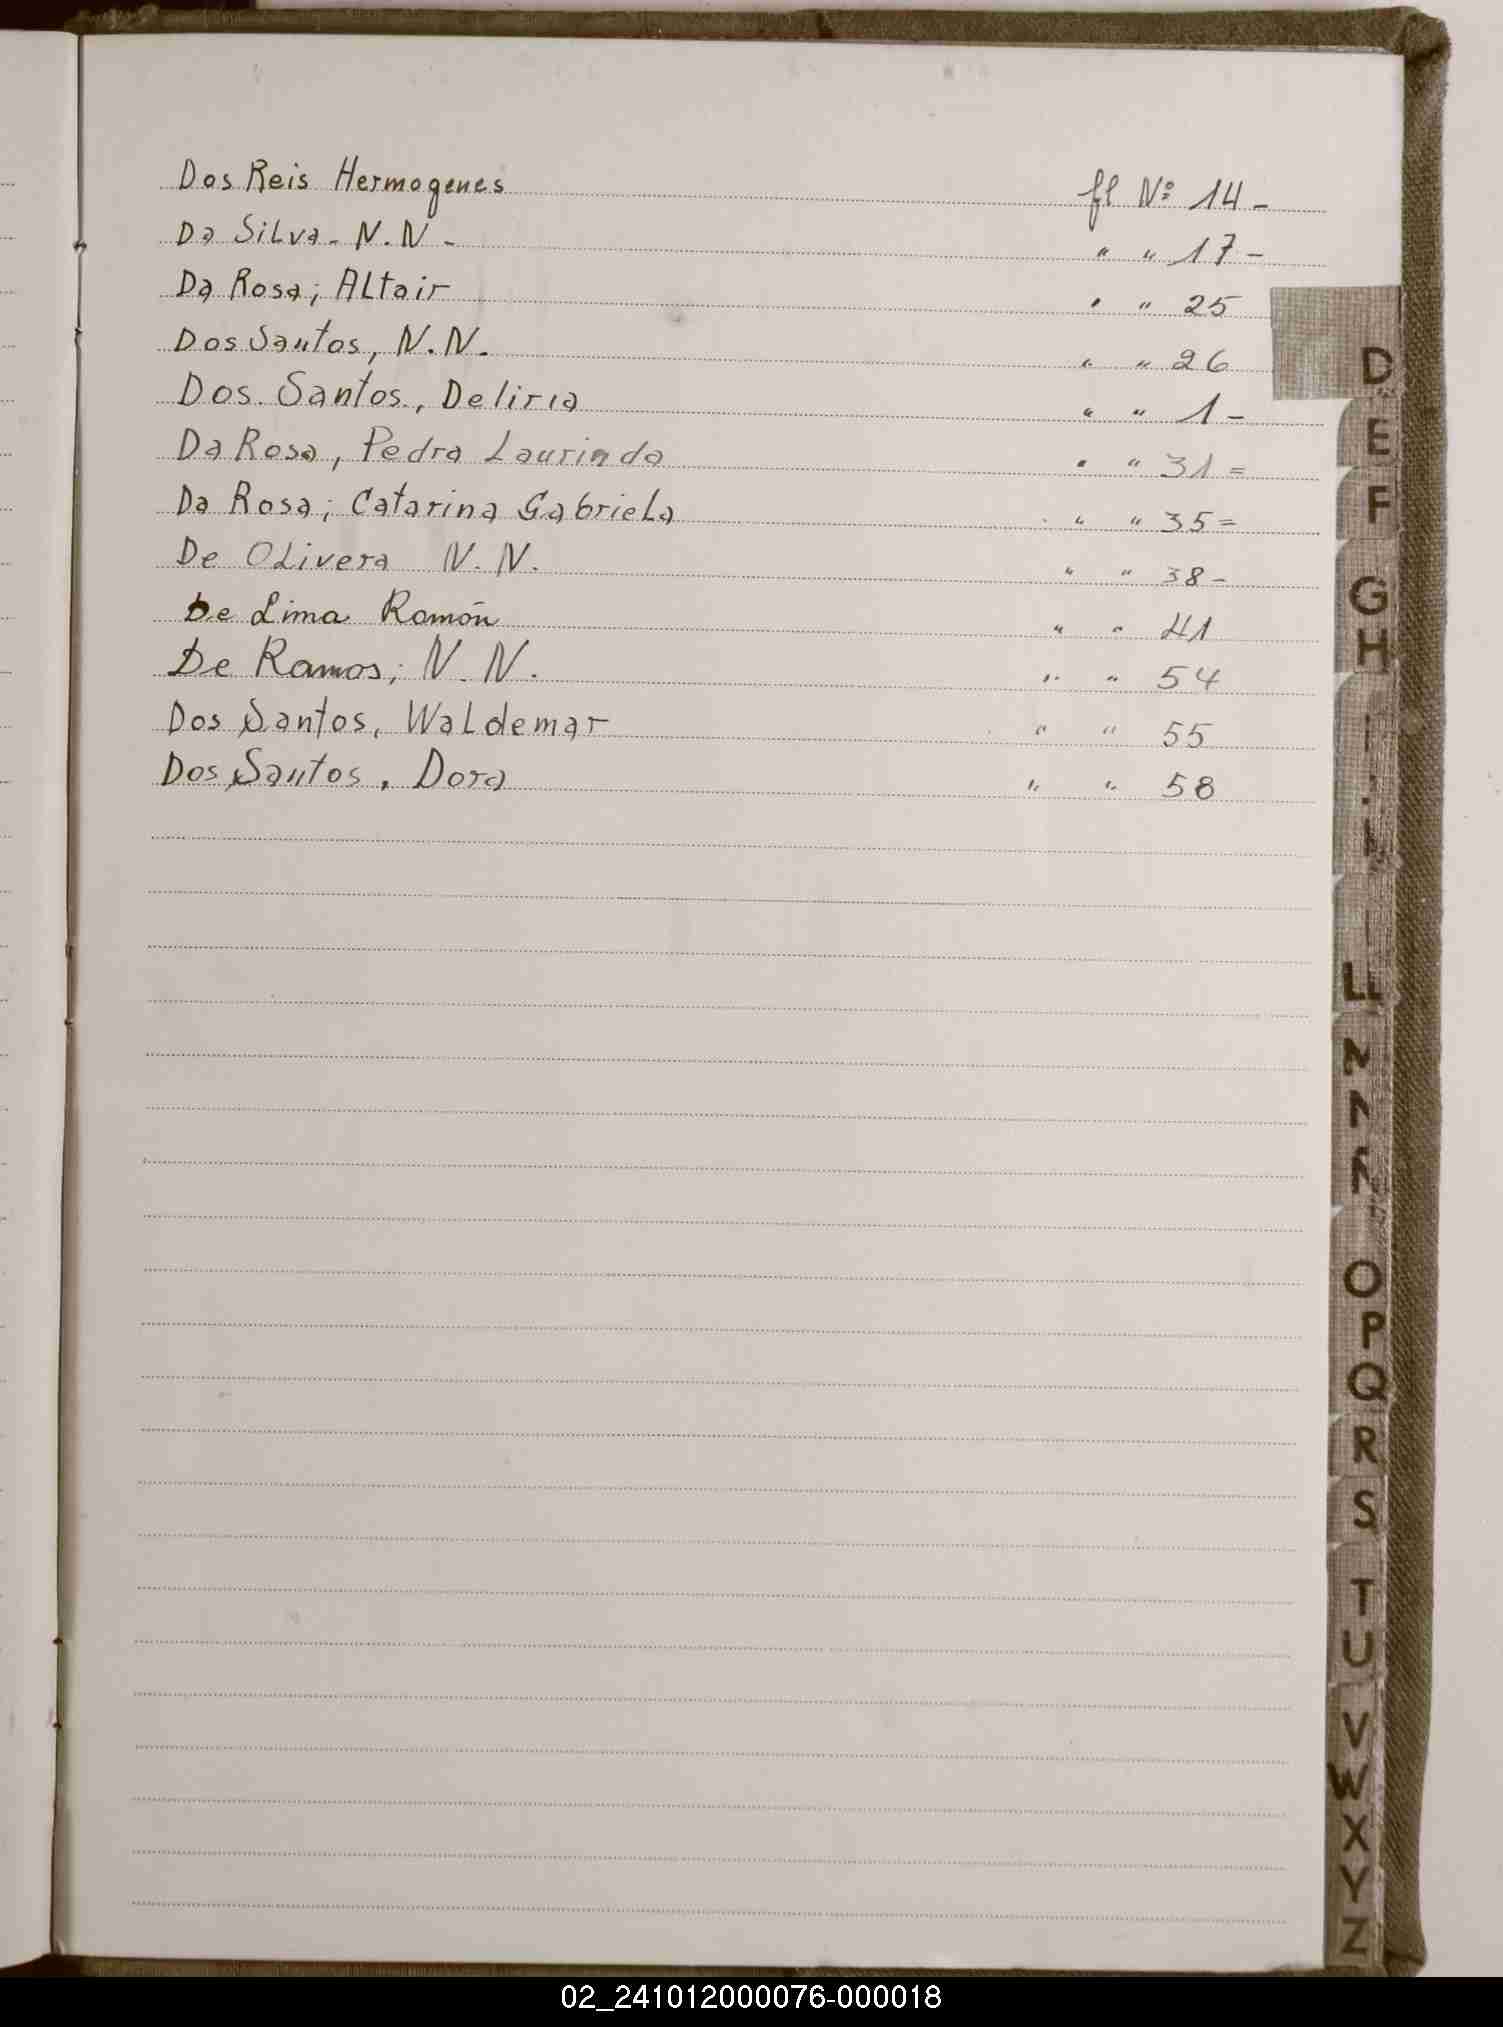 Dos Reis Hermogenes fl Nº 14 -
Da Silva - N.N - " " 17 -
Da Rosa; Altair " " 25
Dos Santos, N.N. " " 26
Dos Santos, Deliria " " 1 -
Da Rosa, Pedra Laurinda " " 31 =
Da Rosa; Catarina Gabriela " " 35 =
De Olivera N.N. " " 38 -
De Lima Ramón " " 41
De Ramos; N.N. " " 54
Dos Santos, Waldemar " " 55
Dos Santos, Dora " " 58
D
E
F
G
H
N
Ñ
O
P
Q
R
S
T
U
V
W
X
Y
Z
02_241012000076-000018